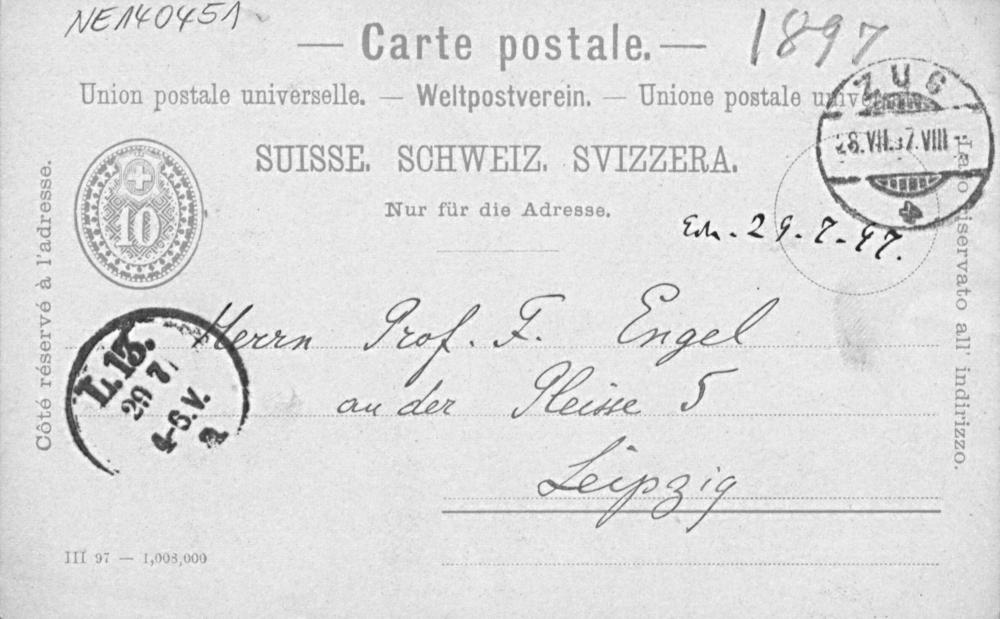 NE140451
1897
— Carte postale. —
Union postale universelle. — Weltpostverein. — Unione postale
SUISSE. SCHWEIZ. SVIZZERA.
Nur für die Adresse.
ZUG
VII.97.VIII
10
29.7.97.
Côté réservé à l'adresse.
Lato riservato all' indirizzo.
Herrn Prof. F. Engel
an der Pleisse 5
Leipzig
L.13.
29 7
4-6.V.
a
III 97 — 1,003,000